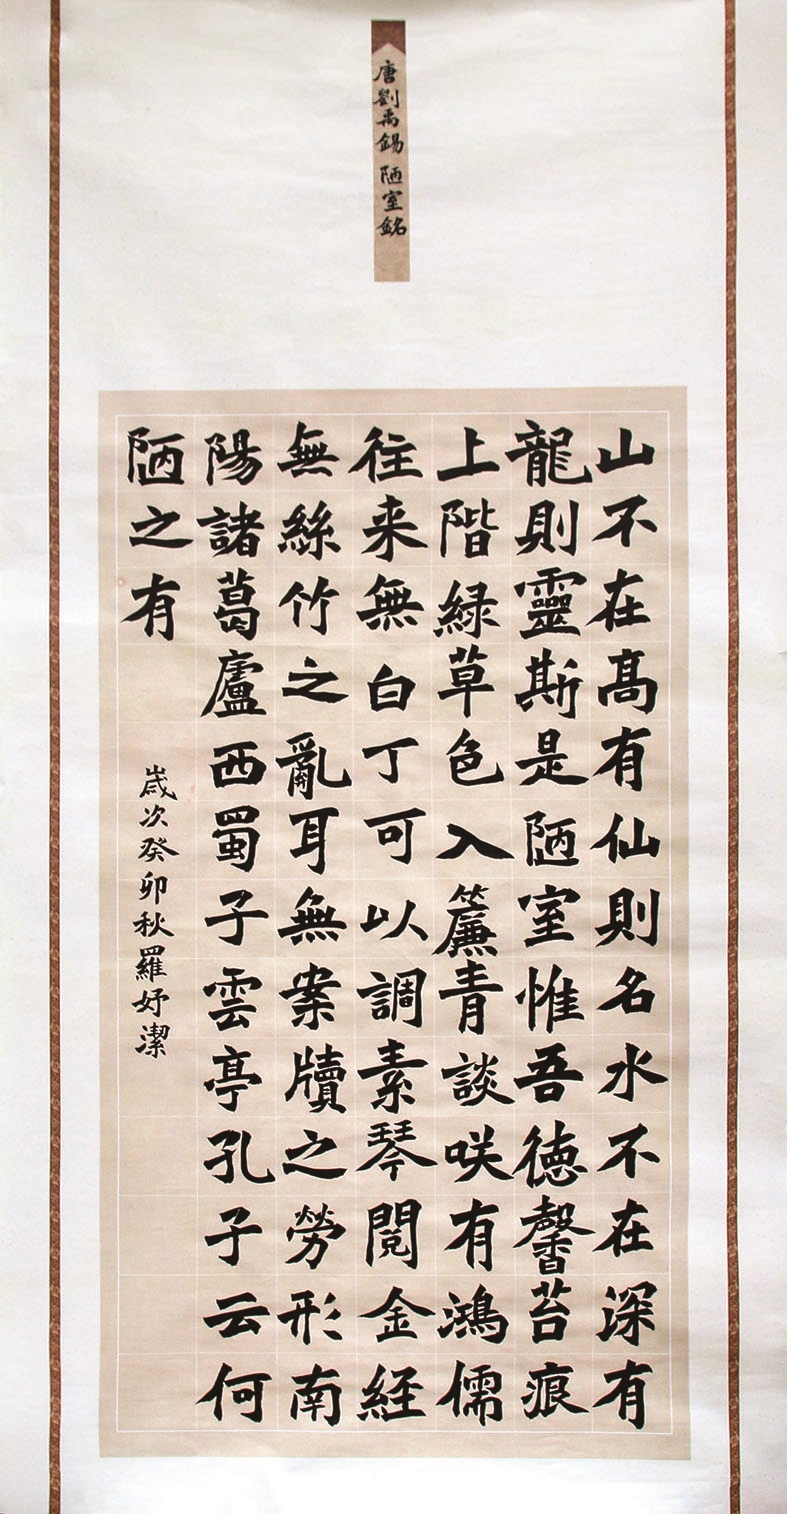 唐劉禹錫 陋室銘
山不在高有仙則名水不在深有
龍則靈斯是陋室惟吾德馨苔痕
上階緑草色入簾青談咲有鴻儒
往来無白丁可以調素琴閱金経
無絲竹之亂耳無案牘之勞形南
陽諸葛廬西蜀子雲亭孔子云何
陋之有
歲次癸卯秋羅妤潔